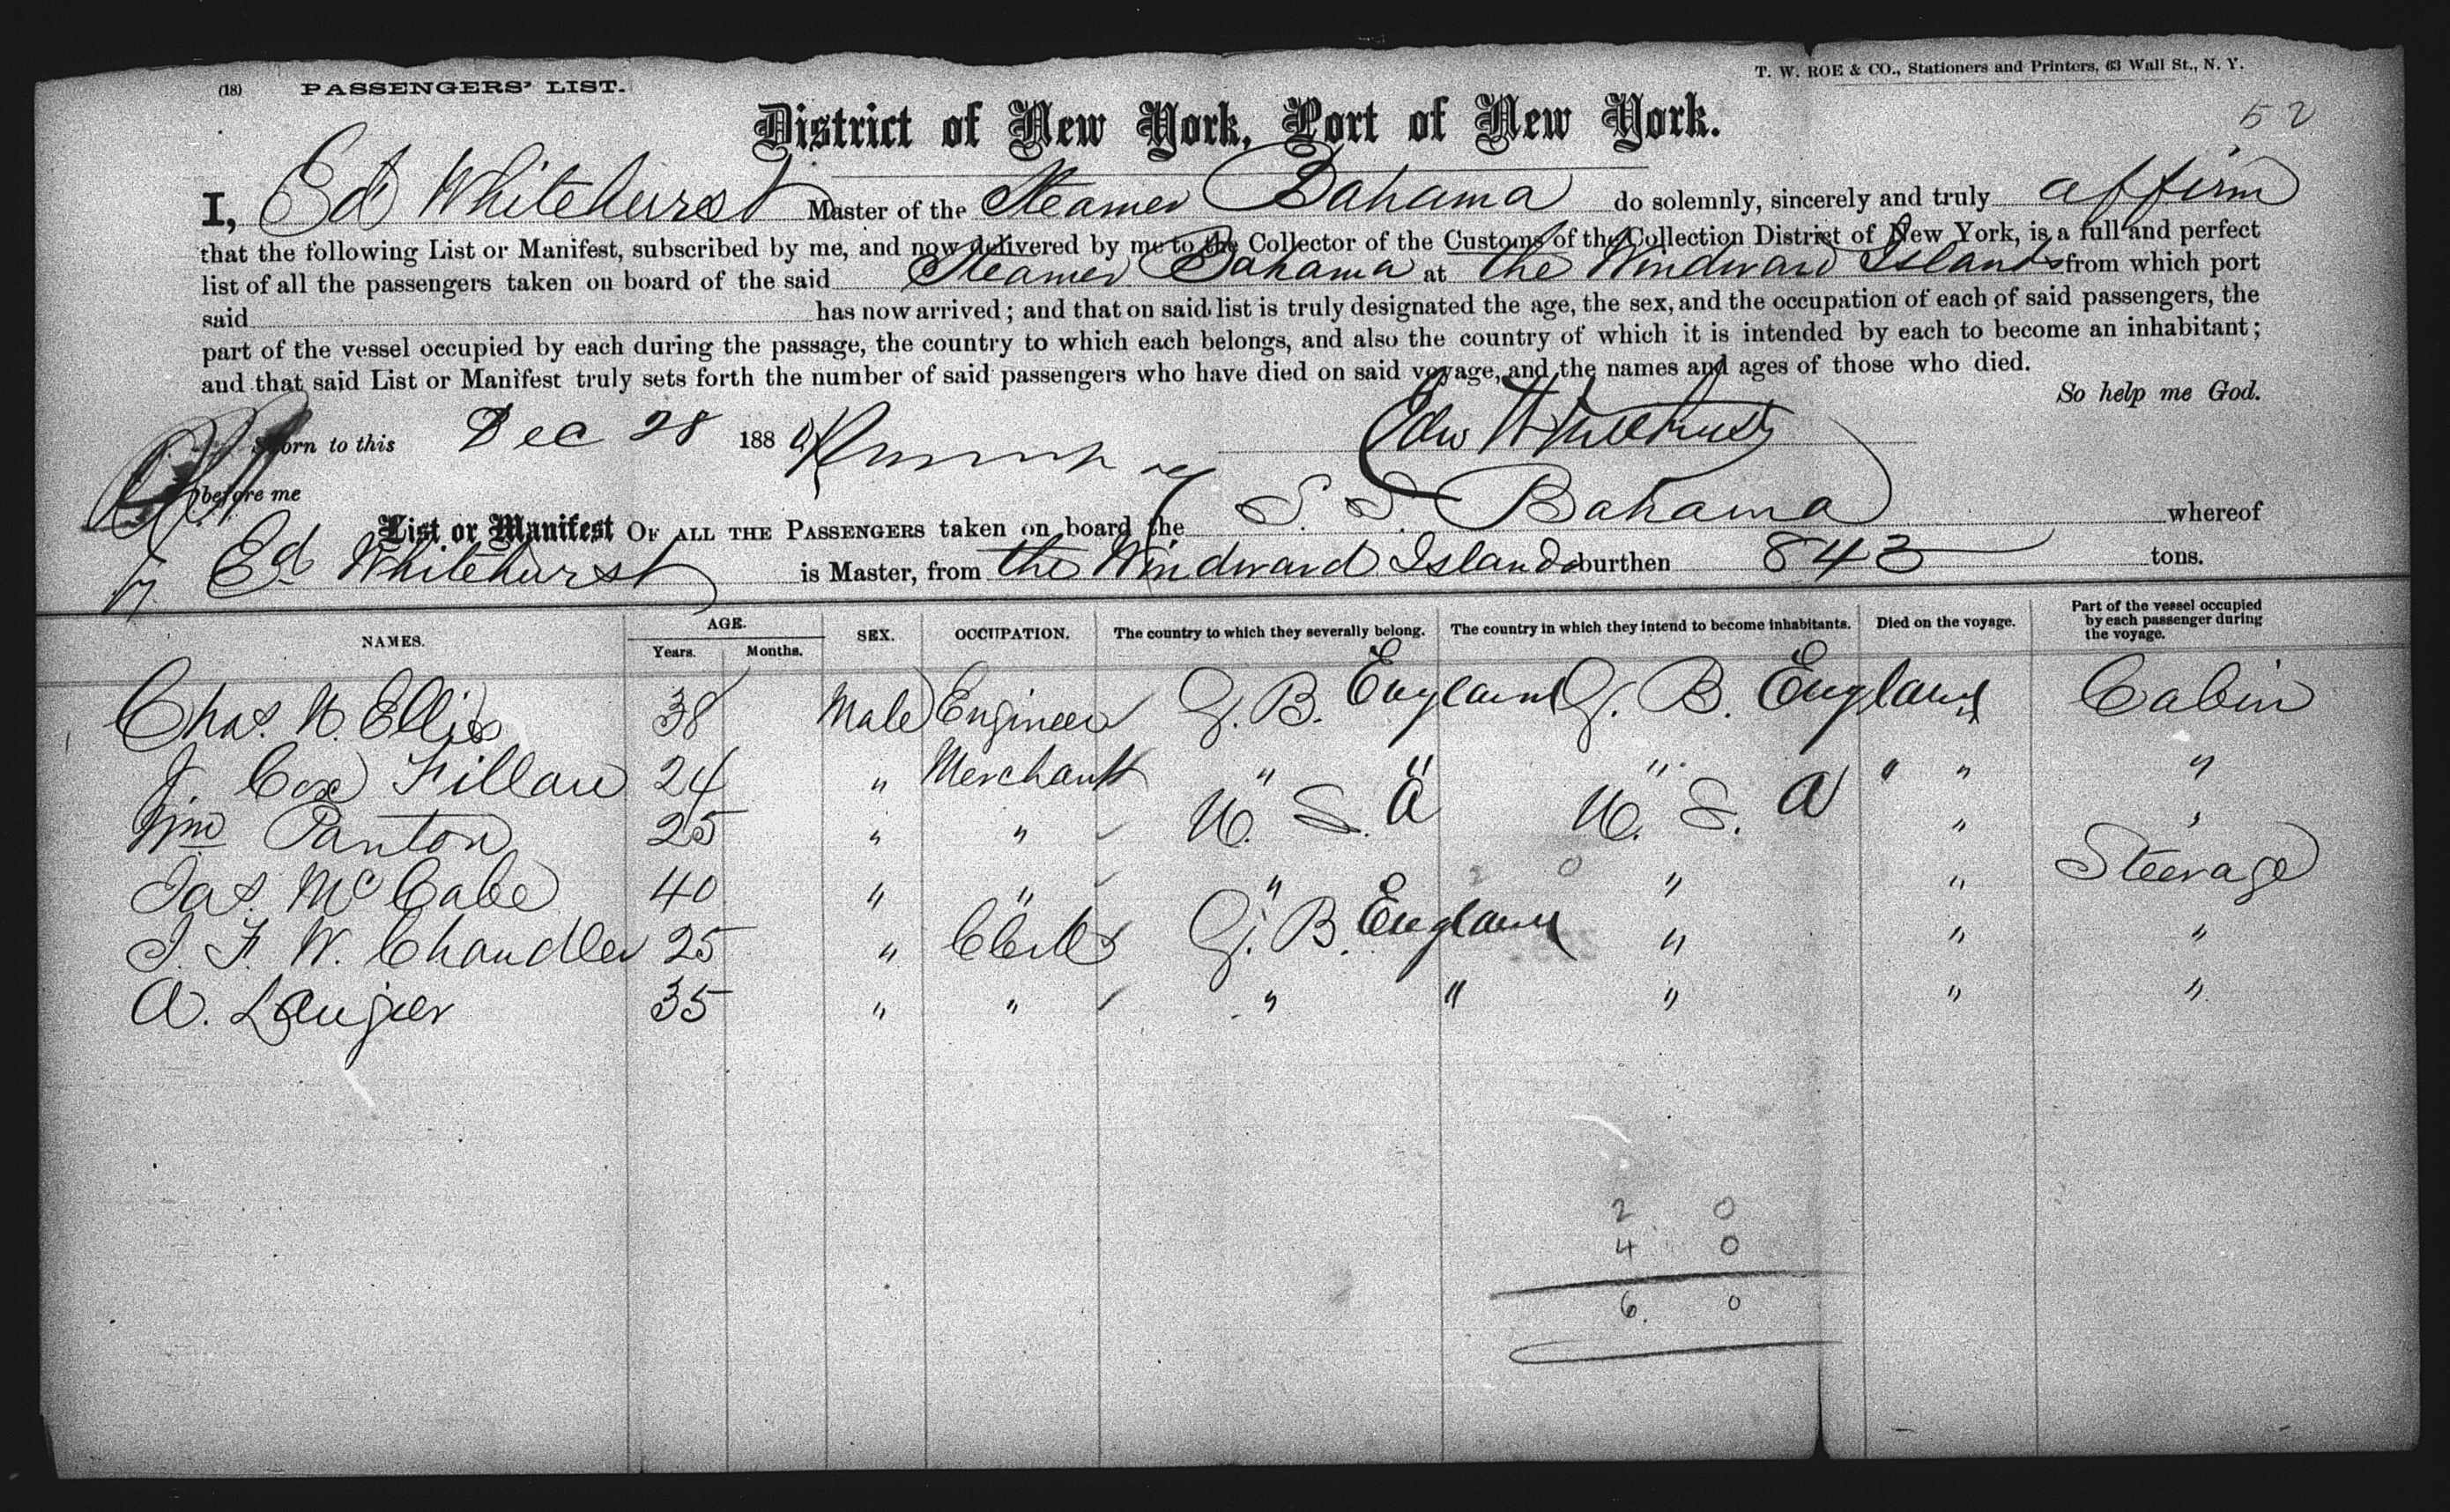 (18) PASSENGERS' LIST. T. W. ROE & CO., Stationers and Printers, 63 Wall St., N. Y.
52
District of New York, Port of New York.
I, Ed Whitehurst Master of the Steamer Bahama do solemnly, sincerely and truly affirm
that the following List or Manifest, subscribed by me, and now delivered by me to the Collector of the Customs of the Collection District of New York, is a full and perfect
list of all the passengers taken on board of the said Steamer Bahama at the Windward Islands from which port
said has now arrived; and that on said list is truly designated the age, the sex, and the occupation of each of said passengers, the
part of the vessel occupied by each during the passage, the country to which each belongs, and also the country of which it is intended by each to become an inhabitant;
and that said List or Manifest truly sets forth the number of said passengers who have died on said voyage, and the names and ages of those who died.
So help me God.
Sworn to this Dec 28 188 Edw Whitehurst
before me
List or Manifest OF ALL THE PASSENGERS taken on board the S. S. Bahama whereof
Ed Whitehurst is Master, from the Windward Islands burthen 843 tons.
NAMES. AGE. Years. Months. SEX. OCCUPATION. The country to which they severally belong. The country in which they intend to become inhabitants. Died on the voyage. Part of the vessel occupied by each passenger during the voyage.
Chas. N. Ellis 38 Male Engineer G. B. England G. B. England Cabin
J Cox Fillan 24 " Merchant " " " " " "
Wm Panton 25 " " U. S. A U. S. A " "
Jas. McCabe 40 " " " " " Steerage
J. F. W. Chandler 25 " Clerk G. B. England " " "
A. Laugier 35 " " " " " " "
2 0
4 0
6 0